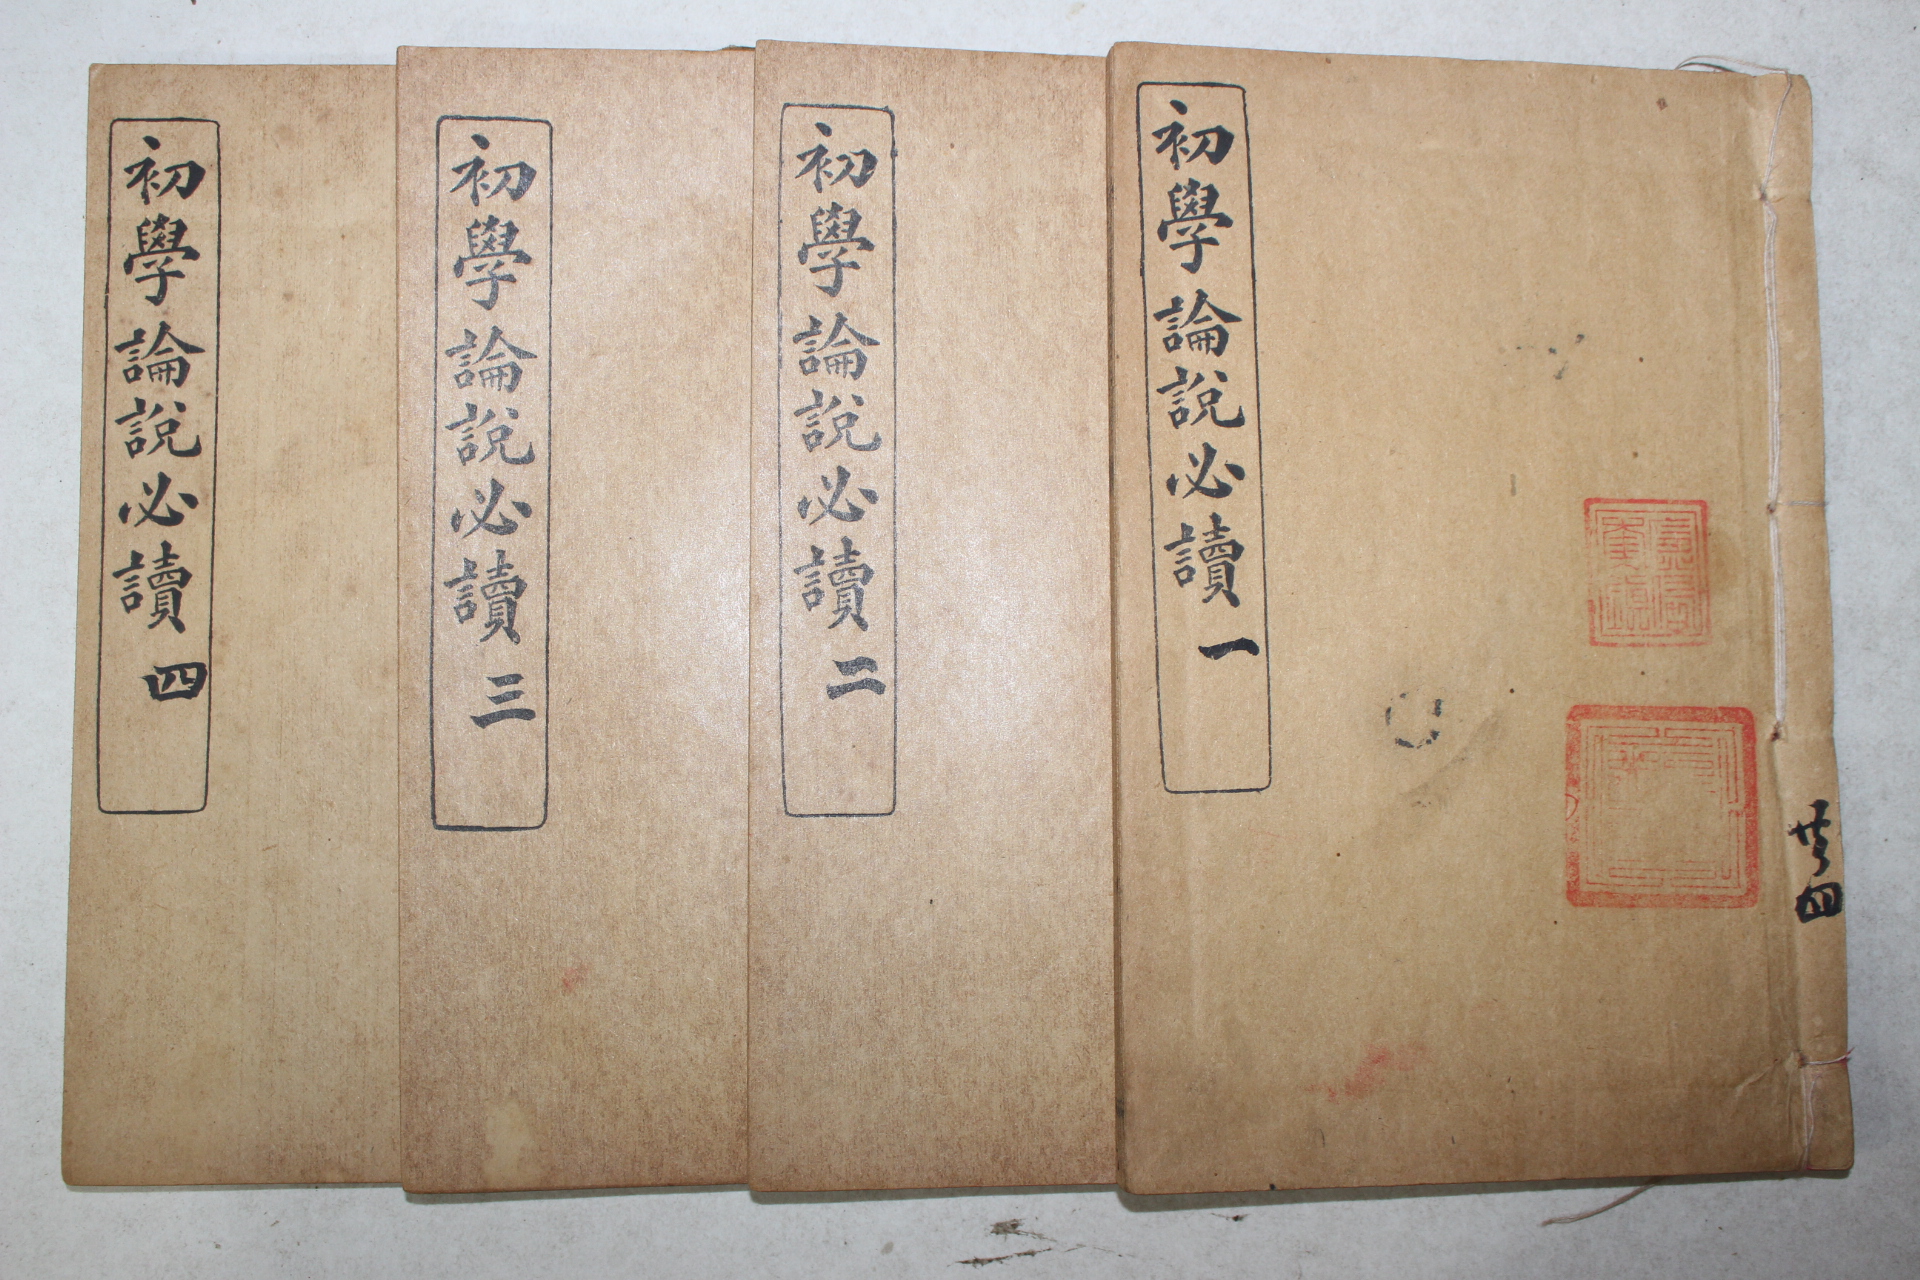 初學論說必讀 一
初學論說必讀 二
初學論說必讀 三
初學論說必讀 四
共四